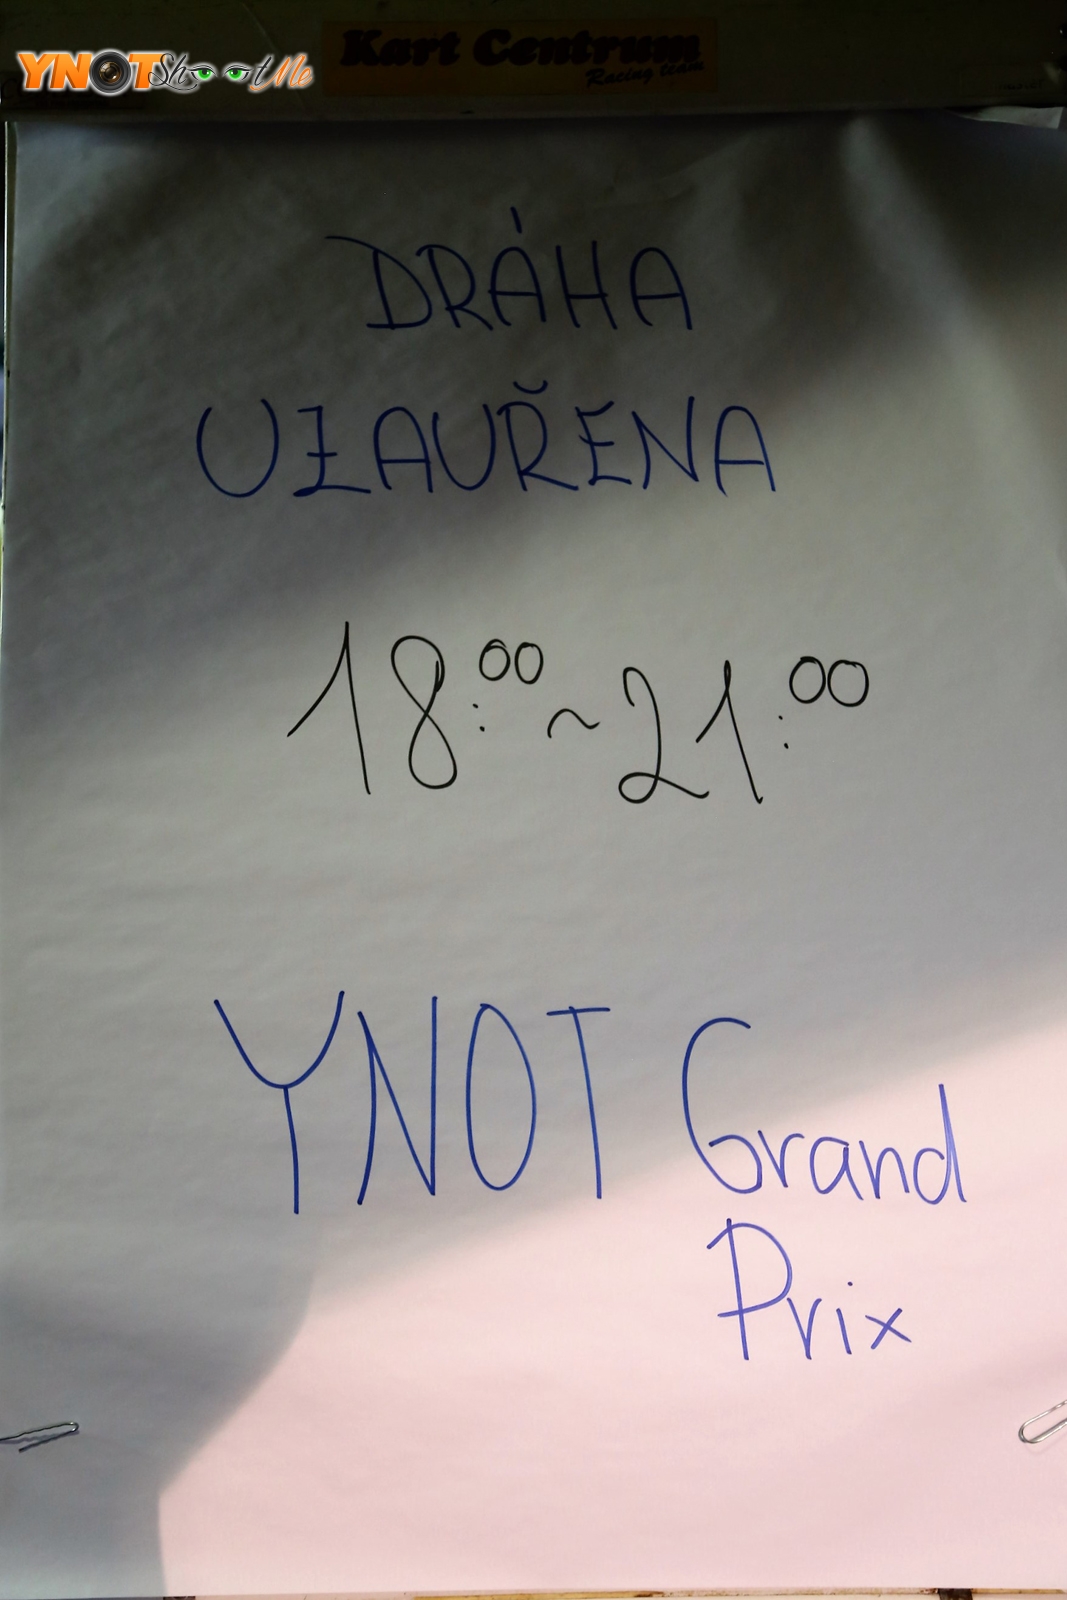 YNOTShootMe
Kart Centrum
Racing team
DRÁHA
UZAUŘENA
18:00 ~ 21:00
YNOT Grand
Prix